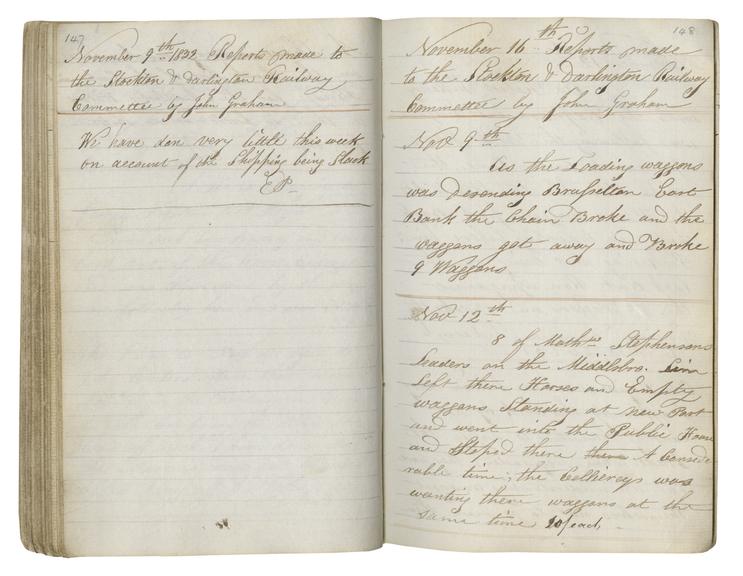 147
November 9th 1832 Reports made to
the Stockton & Darlington Railway
Committee by John Graham
We have don very little this week
on account of the Shipping being Slack
148
November 16th Reports made
to the Stockton & Darlington Railway
Committee by John Graham
Nov 9th
As the Loading waggons
was Desending Brusselton East
Bank the Chain Broke and the
waggons got away and Broke
9 Waggons
Nov 12th
8 of Mathw Stephensons
Leaders on the Middlsbro. Line
left there Horses and Empty
waggons Standing at new Port
and went into the Public House
and Stoped there A Conside
rable time; the Collierys was
wanting there waggons at the
same time 10/ each